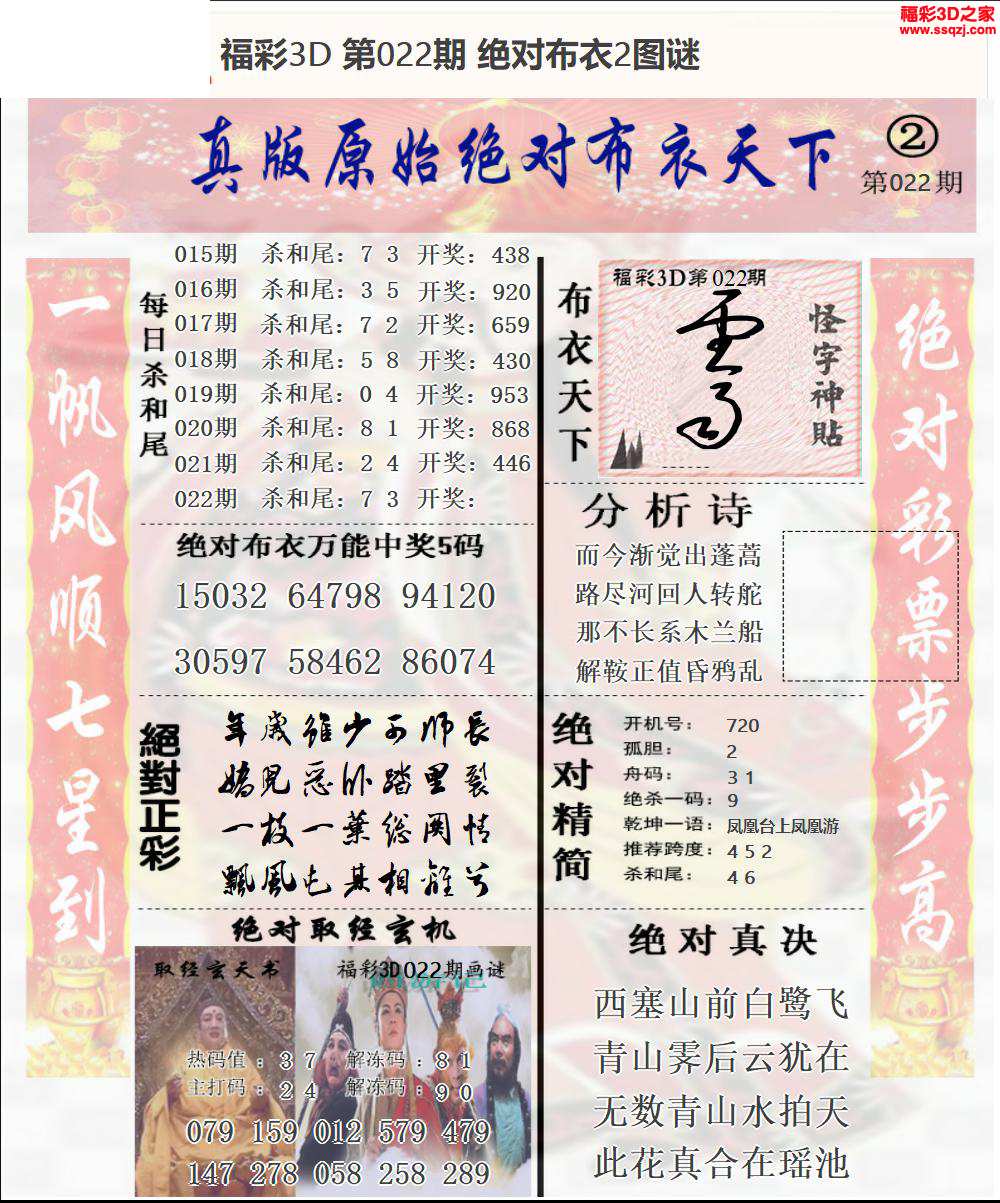 福彩3D之家
www.ssqzj.com
福彩3D 第022期 绝对布衣2图谜
真版原始绝对布衣天下
②
第022期
一帆风顺七星到
每日杀和尾
015期 杀和尾：7 3 开奖：438
016期 杀和尾：3 5 开奖：920
017期 杀和尾：7 2 开奖：659
018期 杀和尾：5 8 开奖：430
019期 杀和尾：0 4 开奖：953
020期 杀和尾：8 1 开奖：868
021期 杀和尾：2 4 开奖：446
022期 杀和尾：7 3 开奖：
绝对布衣万能中奖5码
15032 64798 94120
30597 58462 86074
絕對正彩
年岁虽少可师长
娇儿恶卧踏里裂
一枝一葉总関情
飘風屯其相離兮
绝对取经玄机
取经玄天书
福彩3D022期画谜
热码值：3 7 解冻码：8 1
主打码：2 4 解冻码：9 0
079 159 012 579 479
147 278 058 258 289
布衣天下
福彩3D第022期
怪字神貼
分析诗
而今渐觉出蓬蒿
路尽河回人转舵
那不长系木兰船
解鞍正值昏鸦乱
绝对精简
开机号： 720
孤胆： 2
舟码： 3 1
绝杀一码：9
乾坤一语：凤凰台上凤凰游
推荐跨度：4 5 2
杀和尾： 4 6
绝对真决
西塞山前白鹭飞
青山霁后云犹在
无数青山水拍天
此花真合在瑶池
绝对彩票步步高